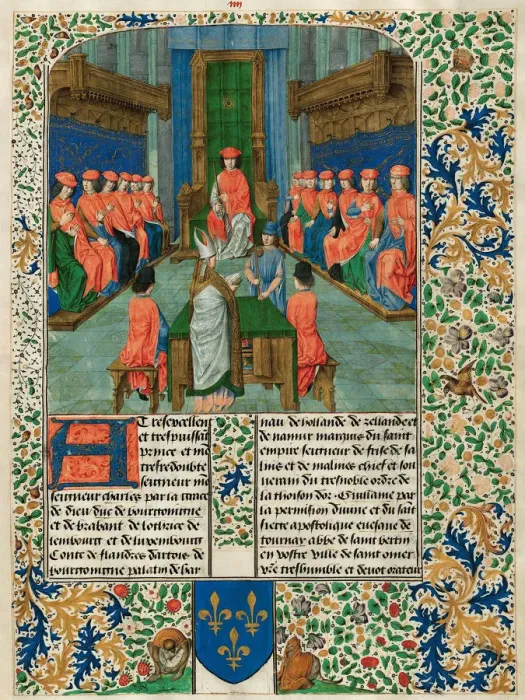 iiii
A Tresexcellent
et trespuissat
prince et mo
tresredoubte
seigneur mo
seigneur charles par la grace
de dieu duc de bourgoingne
et de brabant de lothrice de
lembourg et de luxembourg
Conte de flandres dartois de
bourgoingne palatin de hay
nau de hollande de zellande et
de namur marquis du saint
empire seigneur de frise de sa
lins et de malines chief et sou
uerain du tresnoble ordre de
la thoison dor. Guillame par
la permission diuine et du sait
siege apostolique euesque de
tournay abbe de saint bertin
en vostre ville de saint omer
vre treshumble et deuot orateur